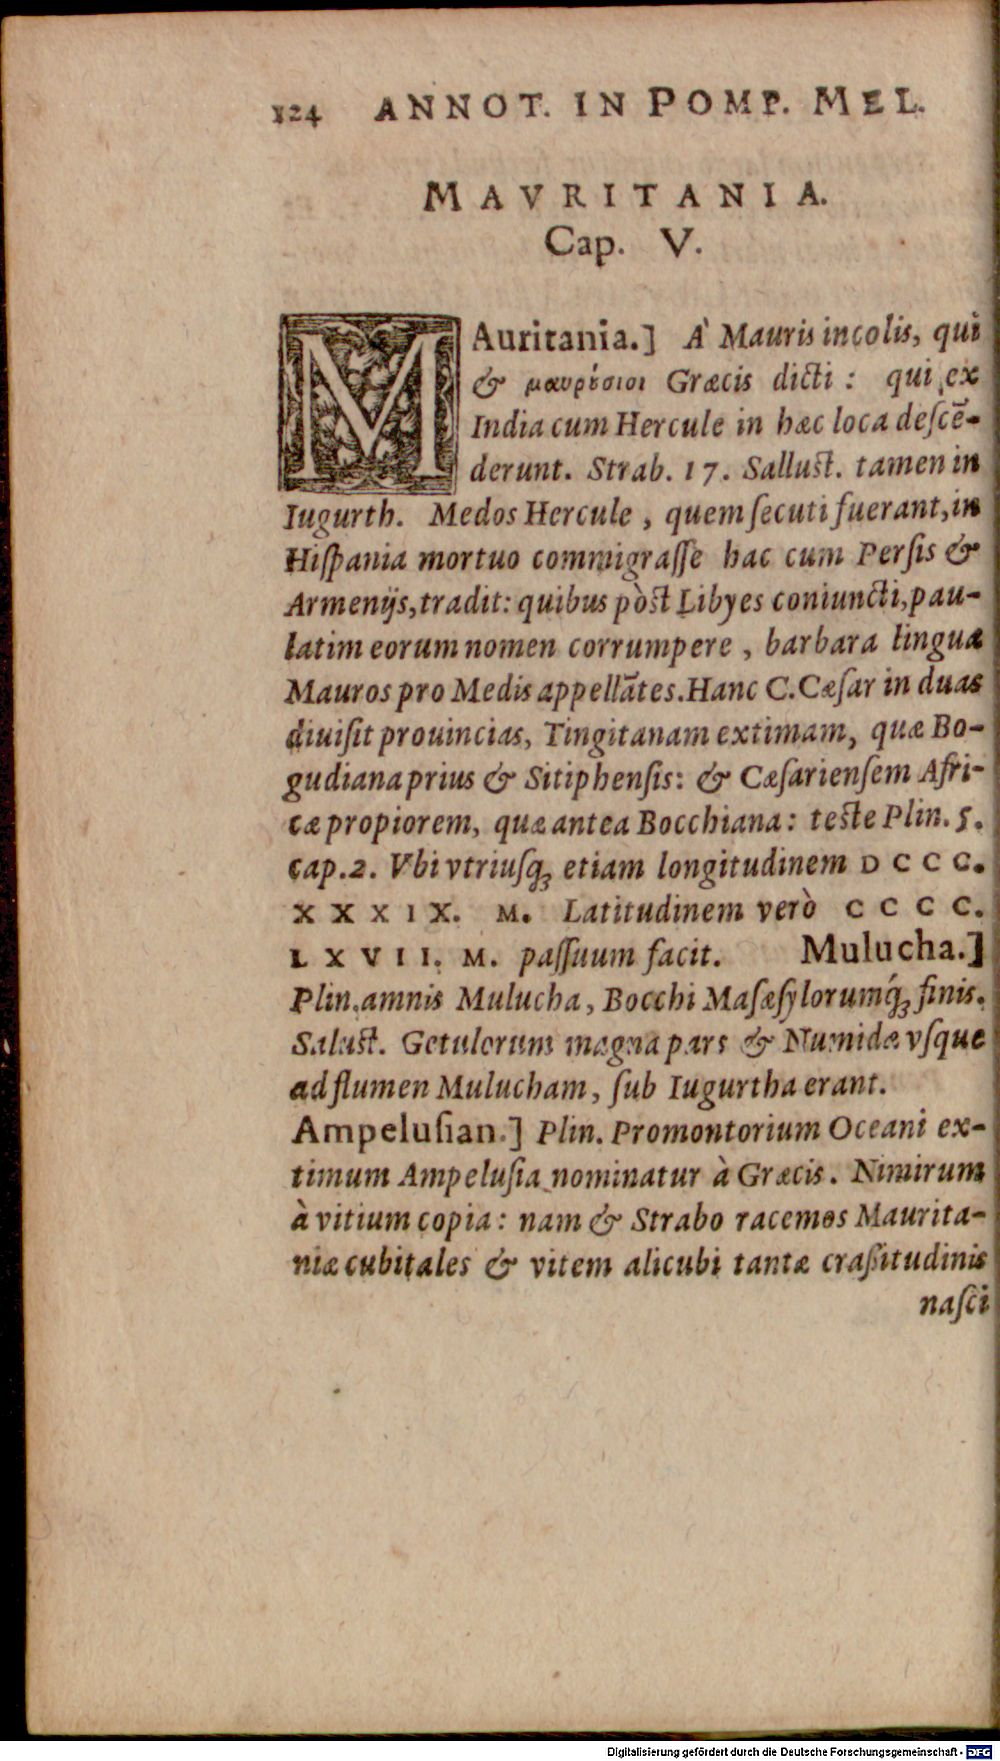 124 ANNOT. IN POMP. MEL.
MAVRITANIA.
Cap. V.
MAuritania.] A' Mauris incolis, qui
& μαυρέσιοι Græcis dicti : qui ex
India cum Hercule in hæc loca deſcē-
derunt. Strab. 17. Salluſt. tamen in
Iugurth. Medos Hercule , quem ſecuti fuerant, in
Hiſpania mortuo commigraſſe hac cum Perſis &
Armenijs, tradit: quibus pòſt Libyes coniuncti, pau-
latim eorum nomen corrumpere , barbara lingua
Mauros pro Medis appellātes. Hanc C. Cæſar in duas
diuiſit prouincias, Tingitanam extimam, quæ Bo-
gudiana prius & Sitiphenſis: & Cæſarienſem Afri-
cæ propiorem, quæ antea Bocchiana: teſte Plin. 5.
cap. 2. Vbi vtriuſqꝫ etiam longitudinem D C C C.
X X X I X. M. Latitudinem verò C C C C.
L X V I I. M. paſſuum facit. Mulucha.]
Plin. amnis Mulucha, Bocchi Maſæſylorumq́ꝫ finis.
Saluſt. Getulorum magna pars & Numidæ vſque
ad flumen Mulucham, ſub Iugurtha erant.
Ampeluſian.] Plin. Promontorium Oceani ex-
timum Ampeluſia nominatur à Græcis. Nimirum
à vitium copia: nam & Strabo racemos Maurita-
niæ cubitales & vitem alicubi tantæ craſſitudinis
naſci
Digitalisierung gefördert durch die Deutsche Forschungsgemeinschaft - DFG